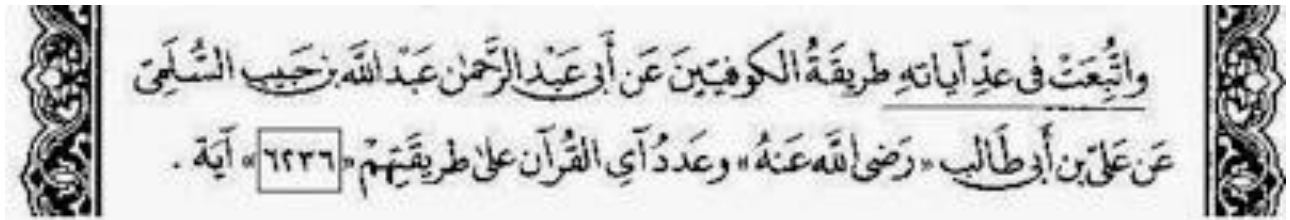 واتُّبِعَتْ فى عدِّ آياتهِ طريقَةُ الكوفيّينَ عَن أَبى عَبْدِ الرَّحمٰن عَبْدِ اللَّه بن حَبيبٍ السُّلَمِىّ
عَن عَلىّ بن أَبى طَالبٍ «رَضىَ اللَّه عَنهُ» وعَددُ آىِ القُرآن علىٰ طريقَتِهمْ «٦٢٣٦» آيَة .